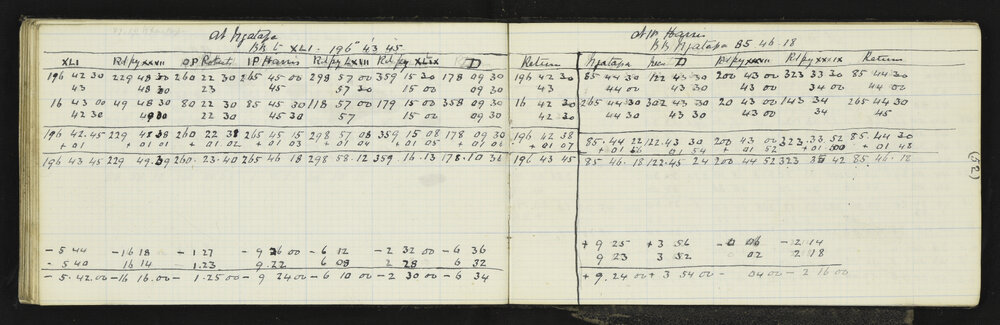 At Ngatapa
BB to XLI. 196° 43 45
XLI Rd Pg XXVII OP IP Harris Rd Pg LXVII Rd Pg XLIX D Return
196 42 30 229 48 30 260 22 30 265 45 00 298 57 00 359 15 30 178 09 30 196 42 30
43 48 30 23 45 57 30 15 00 09 30 43
16 43 00 49 48 30 80 22 30 85 45 30 118 57 00 179 15 00 358 09 30 16 42 30
42 30 30 22 30 45 30 57 15 09 30 42 30
196 42.45 229 48 38 260 22 38 265 45 15 298 57 08 359 15 08 178 09 30 196 42 38
+ 01 + 01 + 01 02 + 01 03 + 01 04 + 01 05 + 01 06 + 01 07
196 43 45 229 49.39 260.23.40 265 46 18 298 58.12 359 16.13 178.10 36 196 43 45
- 5 44 - 16 18 - 1.27 - 9 26 00 - 6 12 - 2 32 00 - 6 36
- 5 40 16 14 1.23 9.22 6 08 2 28 6 32
- 5.42.00 - 16 16.00 - 1.25 00 - 9 24 00 - 6 10 00 - 2 30 00 - 6 34
At IP Harris
BB Ngatapa 85 46.18
Ngatapa D Rd Pg XXXIII Rd Pg XXIX Return
85 44 30 122 43 30 200 43 00 323 33 30 85 44 30
44 00 43 30 43 00 34 00 44 00
265 44 30 302 43 30 20 43 00 143 34 265 44 30
44 30 43 30 43 00 34 45
85.44 22 122.43 30 200 43 00 323.33 52 85.44 30
+ 01 56 01 54 + 01 52 + 01 + 01 48
85.46.18 122.45 24 200 44 52 323 35 42 85.46.18
+ 9 25 + 3 56 - 06 - 2 14
9 23 3 52 02 2 18
+ 9.24 00 + 3 54 00 - 04 00 - 2 16 00
(52)